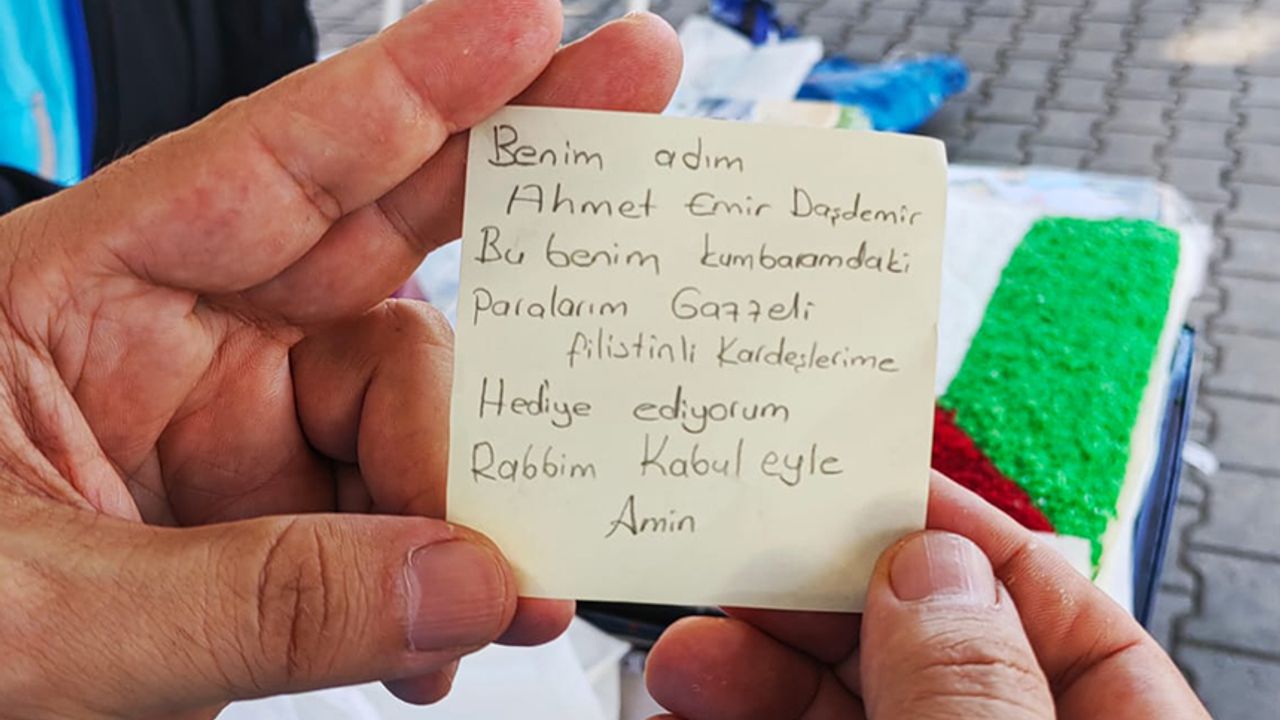 Benim adım
Ahmet Emir Daşdemir
Bu benim kumbaramdaki
Paralarım Gazzeli
filistinli Kardeşlerime
Hediye ediyorum
Rabbim Kabul eyle
Amin